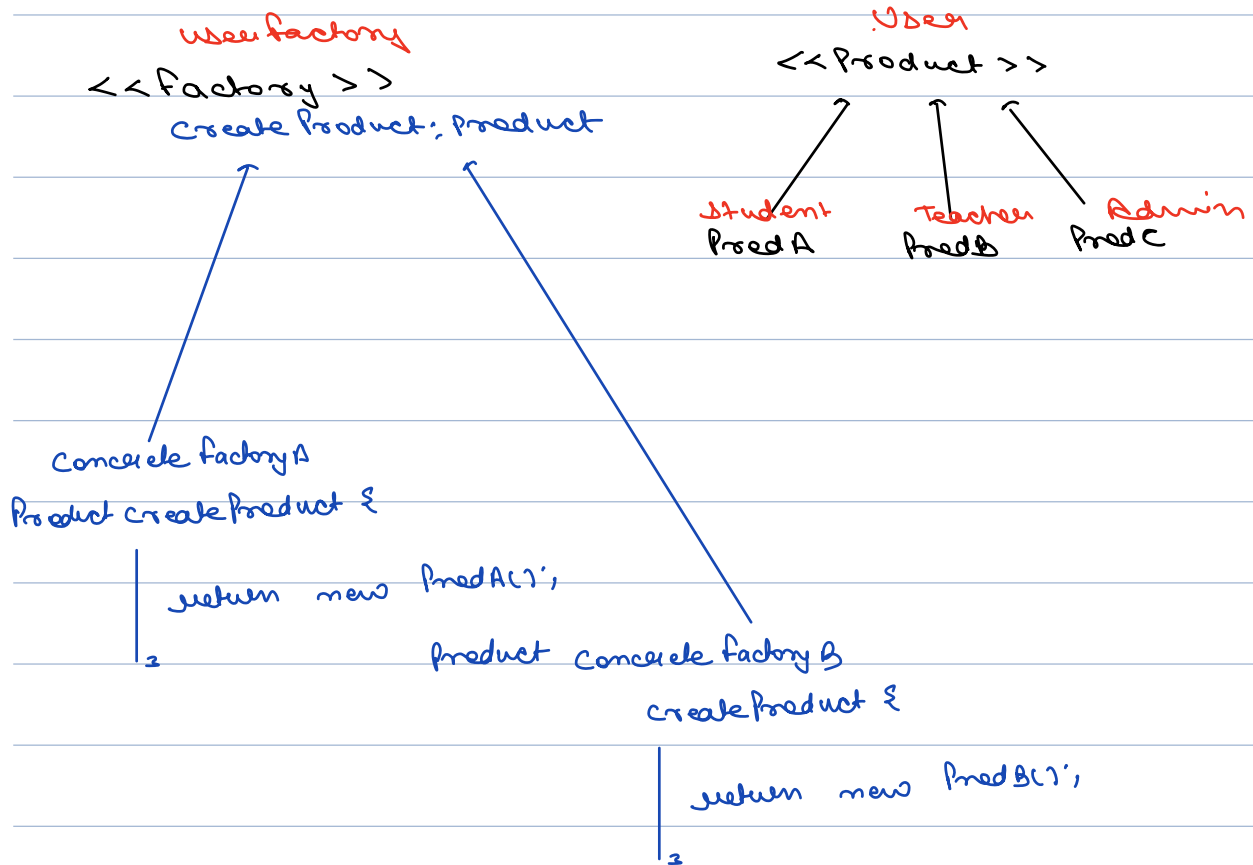 userfactory
<<factory>>
createProduct: product
User
<<Product>>
Student
ProdA
Teacher
ProdB
Admin
ProdC
Concrete factoryA
Product createProduct {
return new ProdA();
}
product Concrete factory B
createProduct {
return new ProdB();
}